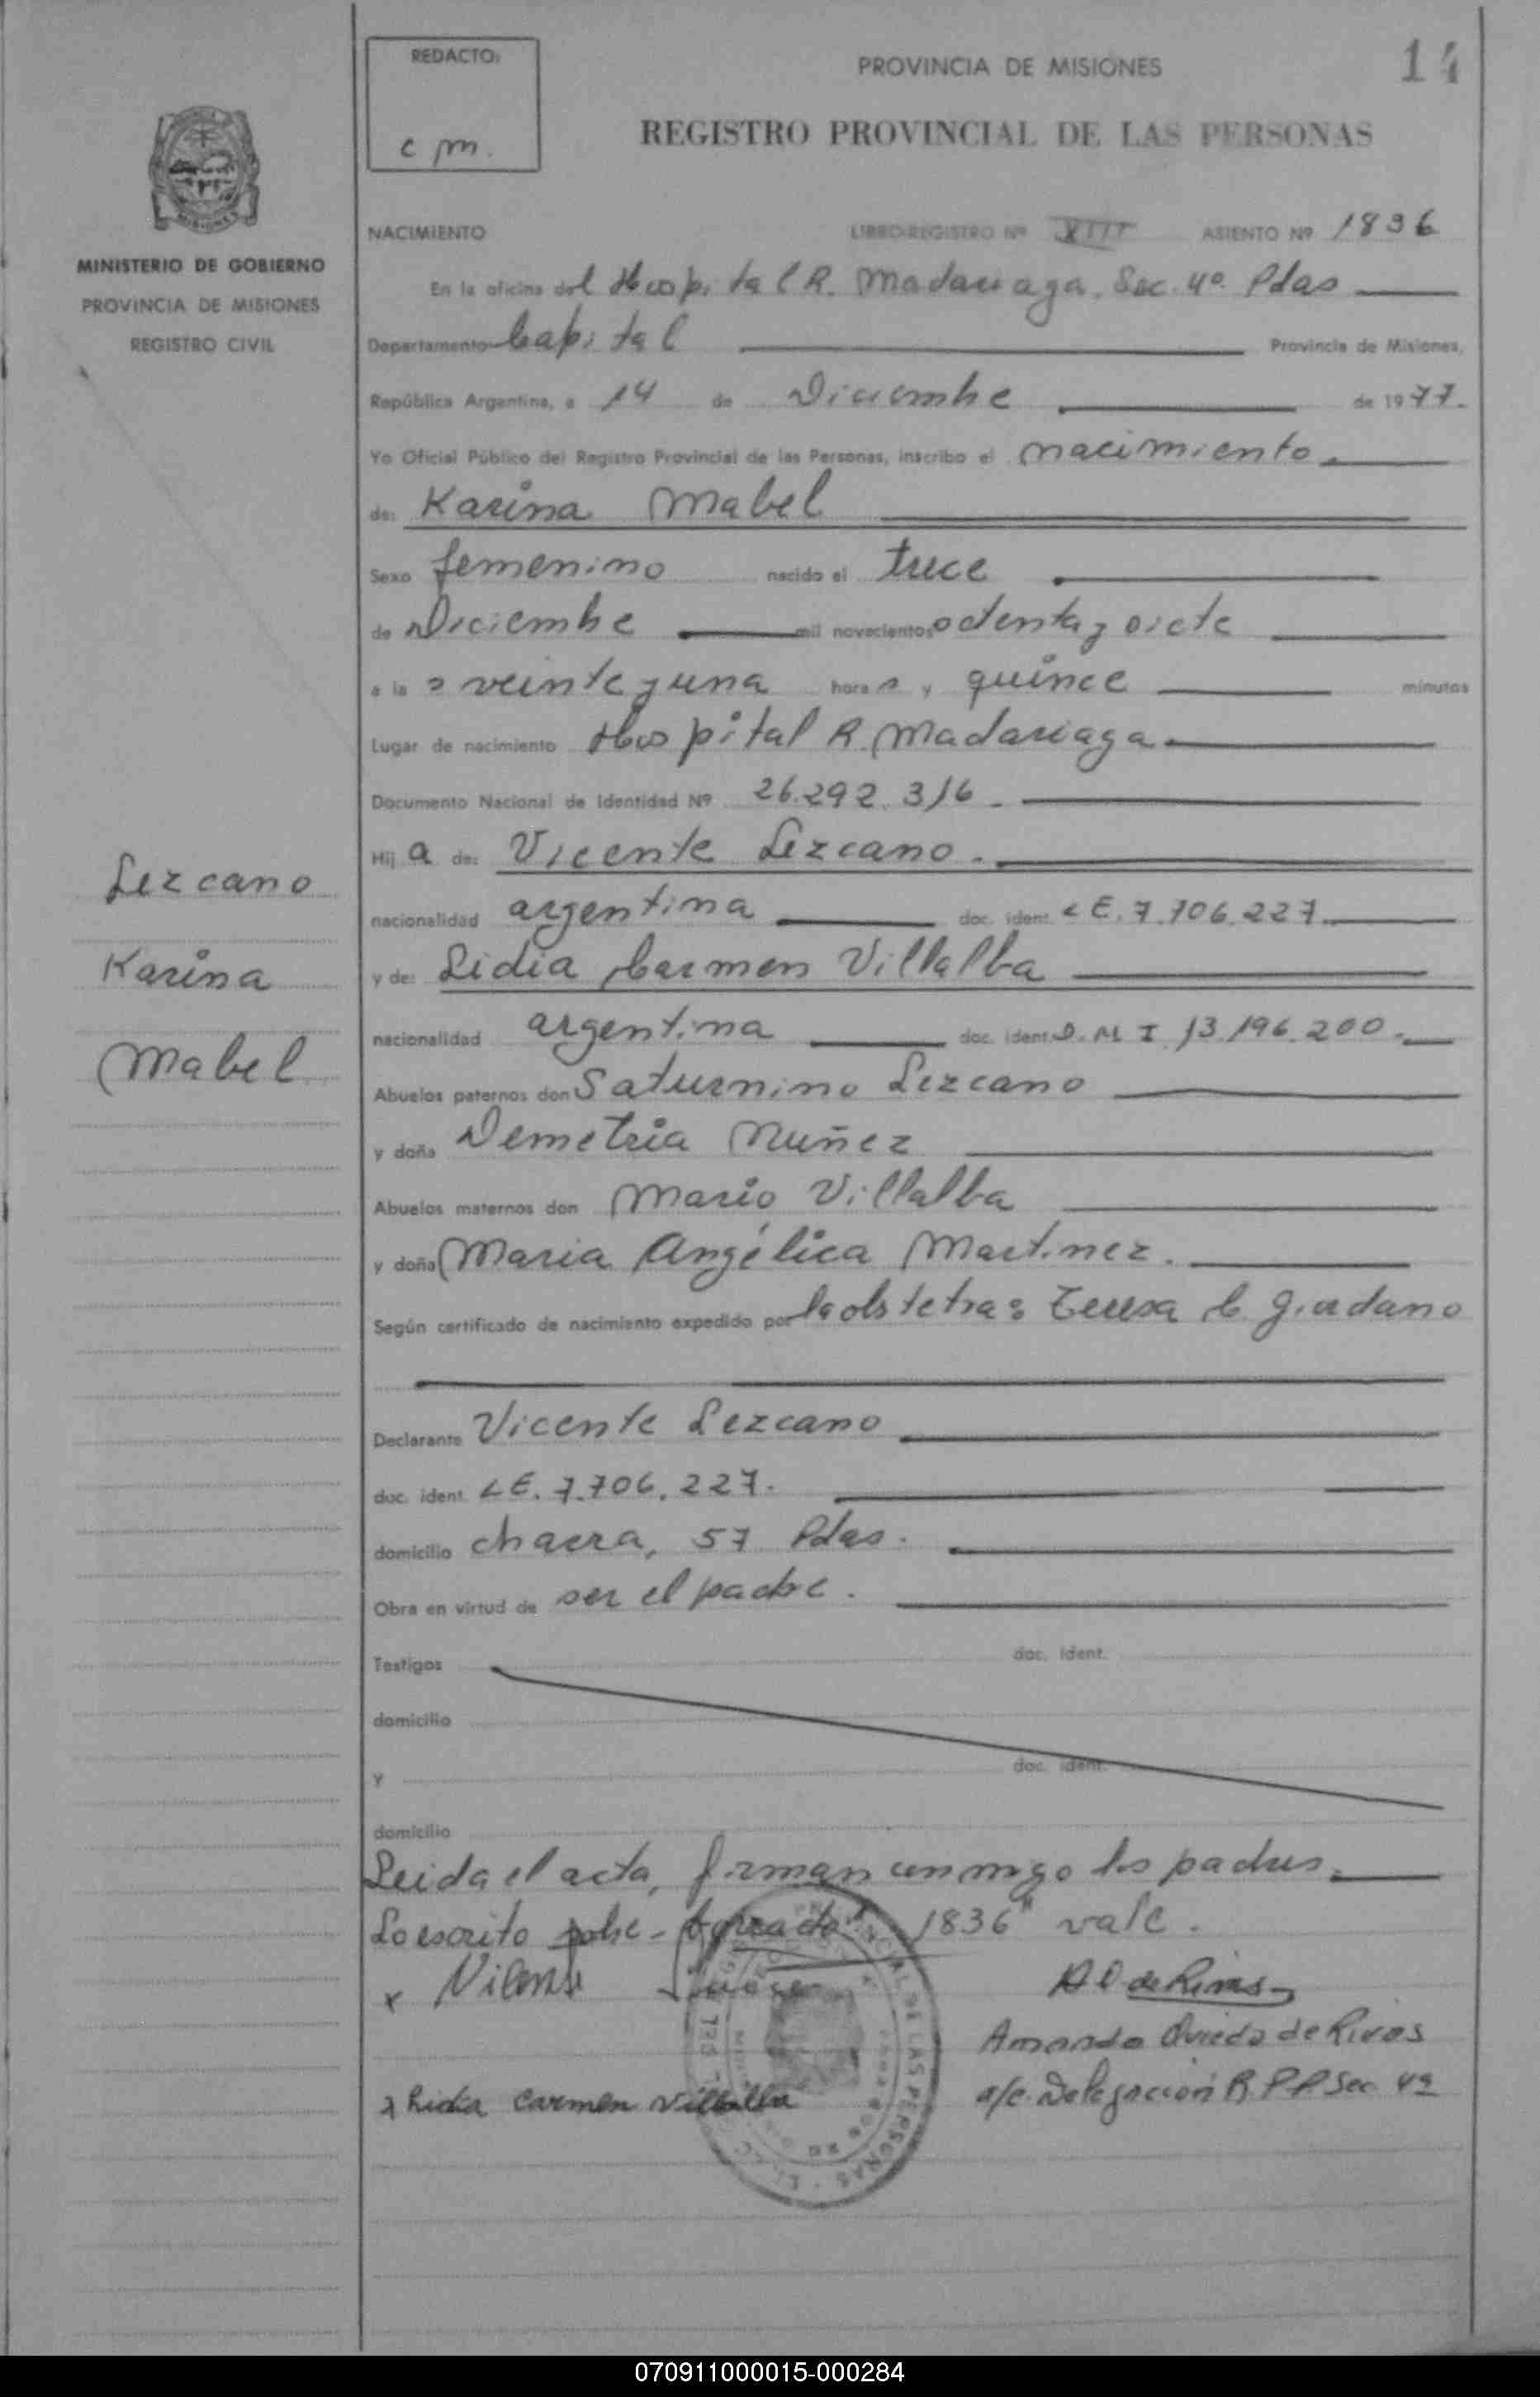 14
REDACTO:
c m.
PROVINCIA DE MISIONES
REGISTRO PROVINCIAL DE LAS PERSONAS
MINISTERIO DE GOBIERNO
PROVINCIA DE MISIONES
REGISTRO CIVIL
NACIMIENTO LIBRO-REGISTRO Nº XIII ASIENTO Nº 1836
En la oficina del Hospital R. Madariaga. Sec. 4ª Pdas
Departamento Capital Provincia de Misiones,
República Argentina, a 14 de Diciembre de 1977.
Yo Oficial Público del Registro Provincial de las Personas, inscribo el nacimiento
de: Karina Mabel
Sexo femenino nacido el trece
de Diciembre mil novecientos setenta y siete
a las veinte y una horas y quince minutos
Lugar de nacimiento Hospital R. Madariaga
Documento Nacional de Identidad Nº 26.292.316
Hija de: Vicente Lezcano.
nacionalidad argentina doc. ident. LE. 7.706.227
y de: Lidia Carmen Villalba
nacionalidad argentina doc. ident. D.N I 13.196.200.
Abuelos paternos don Saturnino Lezcano
y doña Demetria Nuñez
Abuelos maternos don Mario Villalba
y doña Maria Angélica Martinez.
Según certificado de nacimiento expedido por la obstetra: Teresa C. Giordano
Declarante Vicente Lezcano
doc. ident. LE. 7.706.227.
domicilio chacra, 57 Pdas.
Obra en virtud de ser el padre.
Testigos doc. ident.
domicilio
y doc. ident.
domicilio
Leida el acta, firman conmigo los padres.
Lo escrito sobre-borrado: "1836" vale.
x Vicente
A O de Rivas
Amanda Oviedo de Rivas
a/c. Delegación R.P.P Sec 4ª
x Lidia Carmen Villalba
Lezcano
Karina
Mabel
070911000015-000284